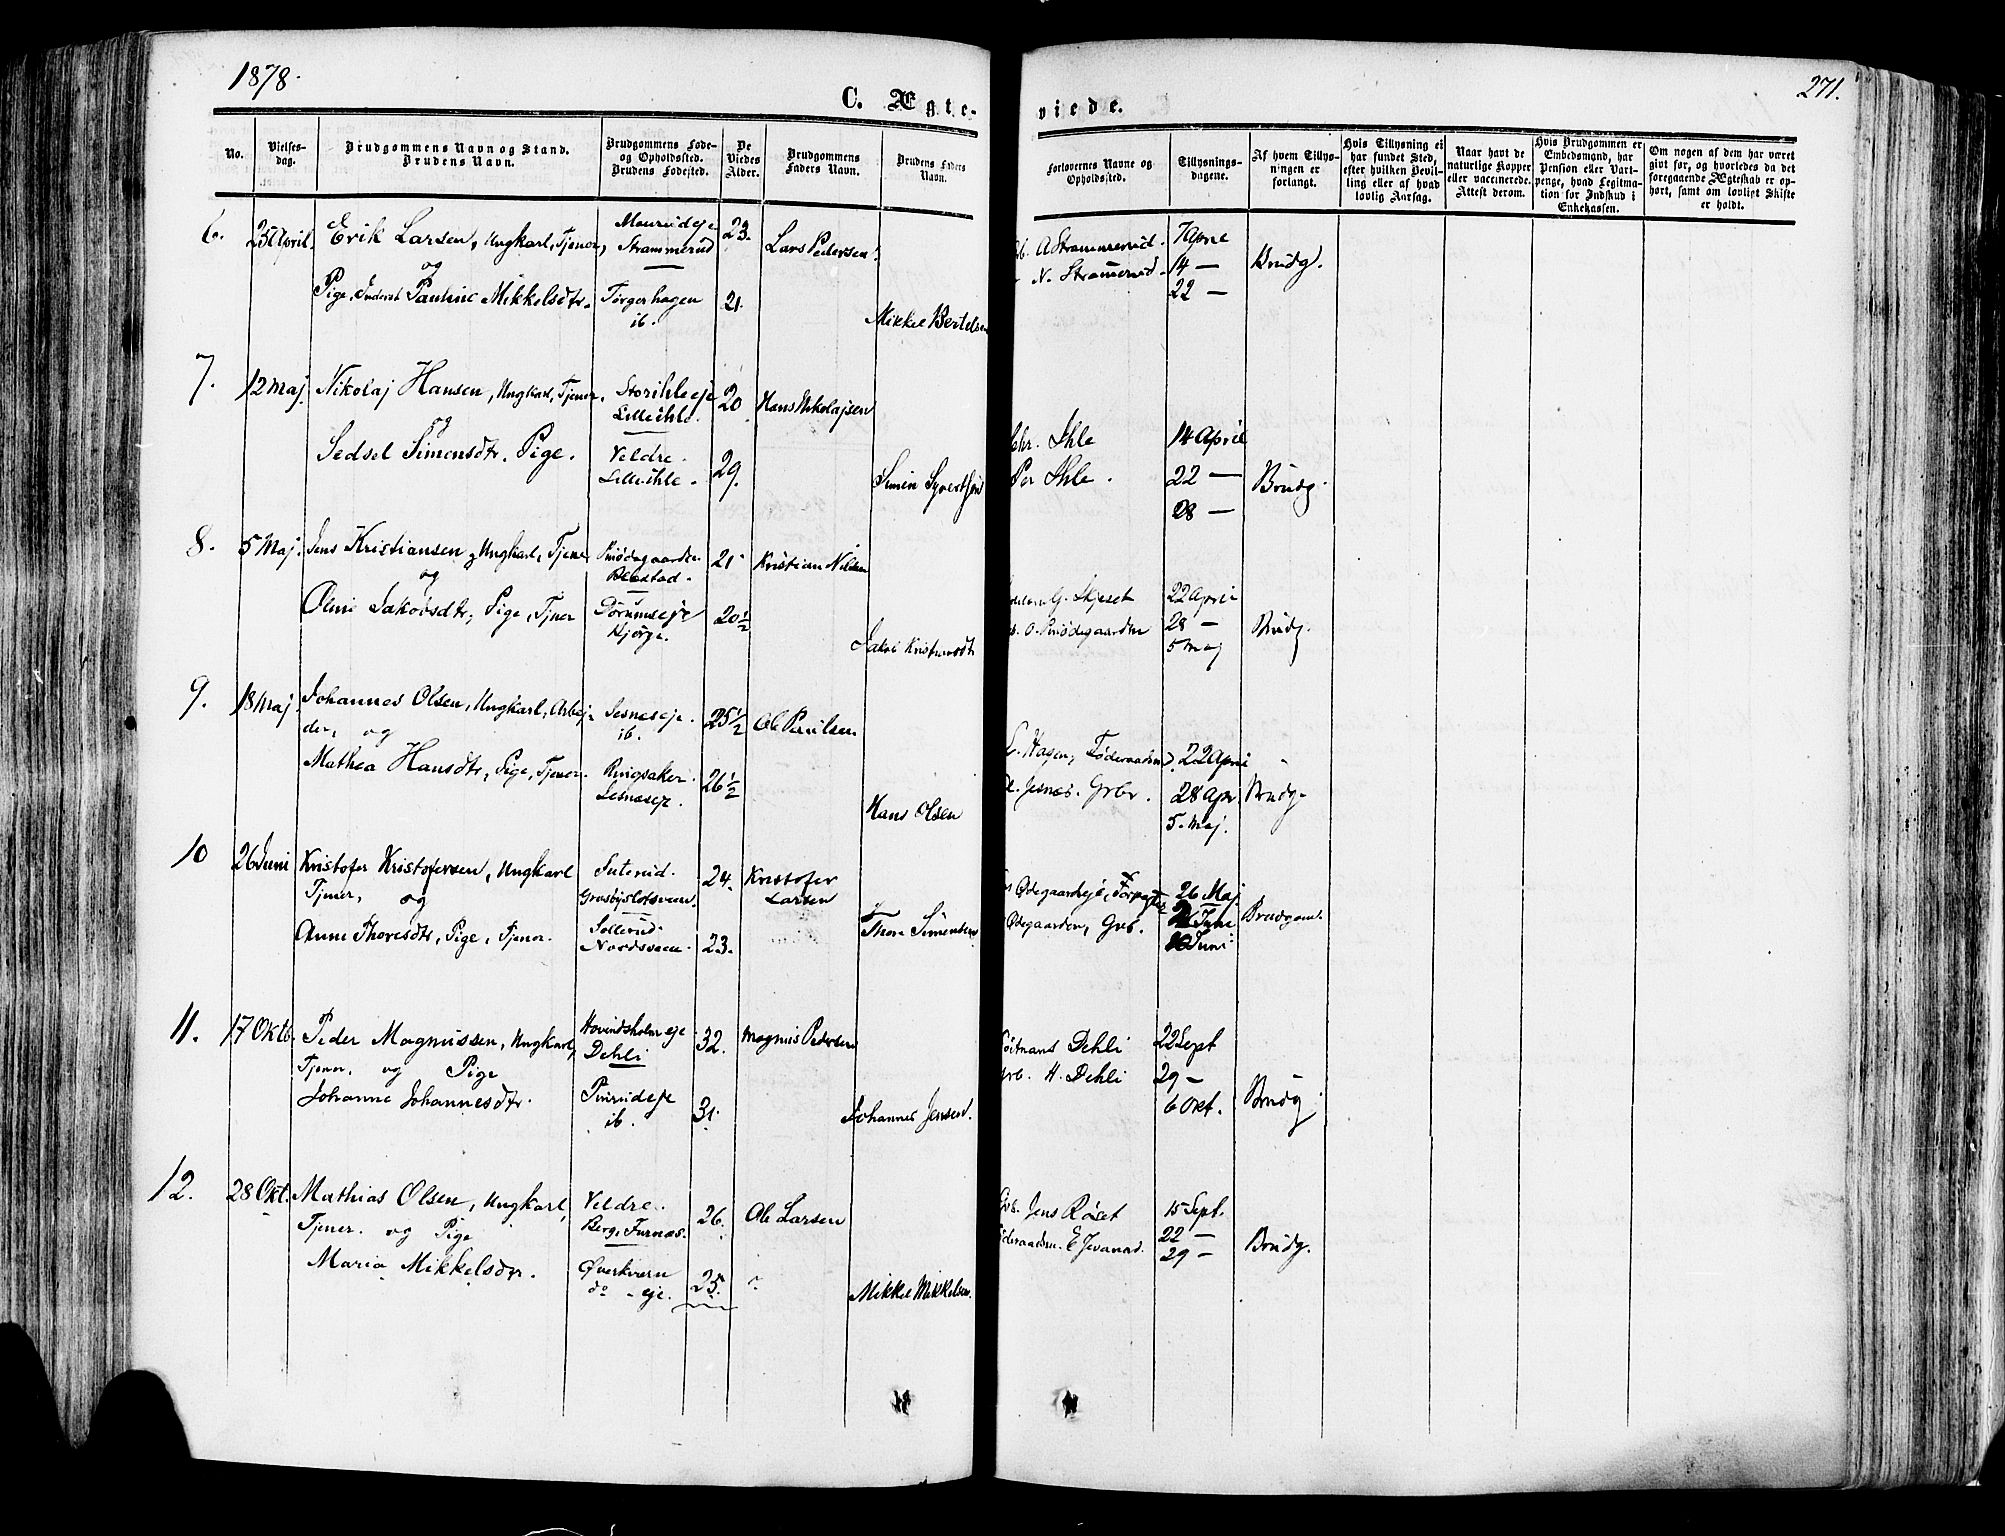 1878.
271.
C. Ægte-
viede.
No.
Vielses-
dag.
Brudgommens Navn og Stand.
Brudens Navn.
Brudgommens Føde-
og Opholdssted.
Brudens Fødested.
De
Viedes
Alder.
Brudgommens
Faders Navn.
Brudens Faders
Navn.
Forlovernes Navne og
Opholdssted.
Tillysnings-
dagene.
Af hvem Tillys-
ningen er
forlangt.
Hvis Tillysning ei
har fundet Sted,
efter hvilken Bevil-
ling eller af hvad
lovlig Aarsag.
Naar havt de
naturlige Kopper
eller vaccinerede.
Attest derom.
Hvis Brudgommen er
Embedsmand, har
Pension eller Vart-
penge, hvad Legitima-
tion for Indskud i
Enkekassen.
Om nogen af dem har været
gift før, og hvorledes da det
foregaaende Ægteskab er op-
hørt, samt om lovligt Skifte
er holdt.
6. 25 April. Erik Larsen, Ungkarl, Tjener, 23. Lars Pedersen.
Strammerud
og
Pige, Inderst Pauline Mikkelsdtr. Torgerhagen 21.
ib.
Mikkel Bertelsen
A. Strammerud. 7 April
N. Strammerud. 14 — Brudg.
22 —
7. 12 Maj. Nikolaj Hansen, Ungkarl, Tjener. Storihleeje 20 Hans Nikolajsen
Lilleihle.
og
Sedsel Simensdtr. Pige. Veldre. 29.
Lilleihle.
Simen Syvertsen
Chr. Ihle 14 April
Per Ihle. 22 — Brudg.
28 —
8. 5 Maj. Jens Kristiansen, Ungkarl, Tjener 21 Kristian Nilsen
og
Oline Jakobsdtr, Pige, Tjener 20½
Hjørge.
Jakob
G. Skjeset 22 April
28 — Brudg.
5 Maj
9. 18 Maj. Johannes Olsen, Ungkarl, Arbej- Jesneseje. 25½ Ole Paulsen
der, og ib.
Mathea Hansdtr, Pige, Tjener. Ringsaker. 26½
Jesneseje.
Hans Olsen
Hagen, Føderaadsm. 22 April
Jesnes. Grbr. 28 Apr. Brudg.
5. Maj.
10 26 Juni Kristofer Kristofersen, Ungkarl 24. Kristofer
Tjener, og Larsen
Anne Thoresdtr, Pige, Tjener. Sollerud. 23.
Nordsveen.
Thore Simensen
Ødegaardseje, 26 Maj.
Ødegaarden, Grb. 2 Juni Brudgom.
10 Juni
11. 17 Oktb. Peder Magnussen, Ungkarl, Hovindsholm eje 32. Magnus Pedersen
Dehli
Tjener. og Pige
Johanne Johannesdtr. 31.
ib.
Johannes Jensen.
Dehli 22 Sept
H. Dehli 29 —
6 Okt. Brudg.
12. 28 Okt. Mathias Olsen, Ungkarl, Veldre. 26. Ole Larsen
Berg, Furnæs.
Tjener. og Pige
Maria Mikkelsdtr. Øverkvern 25.
do - eje.
Mikkel Mikkelsen.
Grb. Jens Røset 15 Sept.
22 — Brudg.
29 —